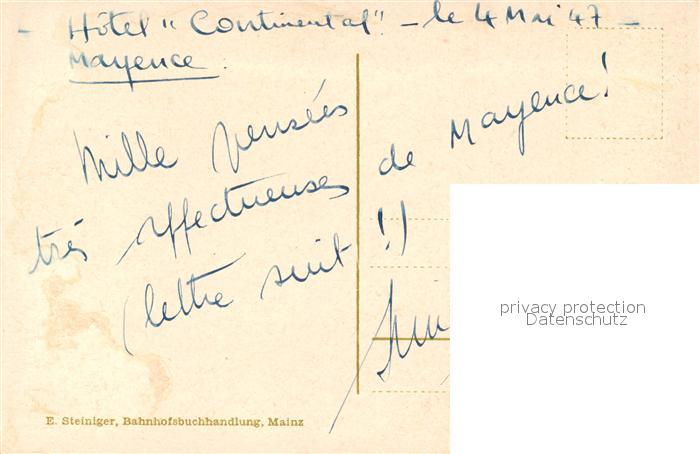 - Hôtel "Continental" - le 4 Mai 47 -
Mayence :
Mille pensées
très affectueuses de Mayence!
(lettre suit !!)
privacy protection
Datenschutz
E. Steiniger, Bahnhofsbuchhandlung, Mainz